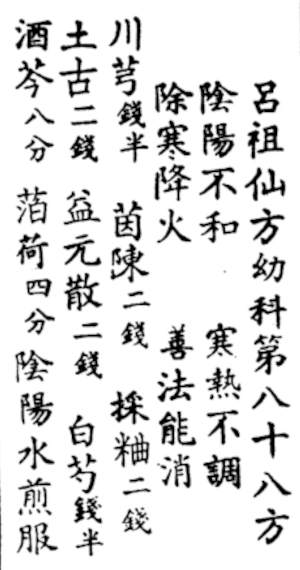 呂祖仙方幼科第八十八方
陰陽不和 寒熱不調
除寒降火 善法能消
川芎錢半 茵陳二錢 採粬二錢
土古二錢 益元散二錢 白芍錢半
酒芩八分 萡荷四分 陰陽水煎服